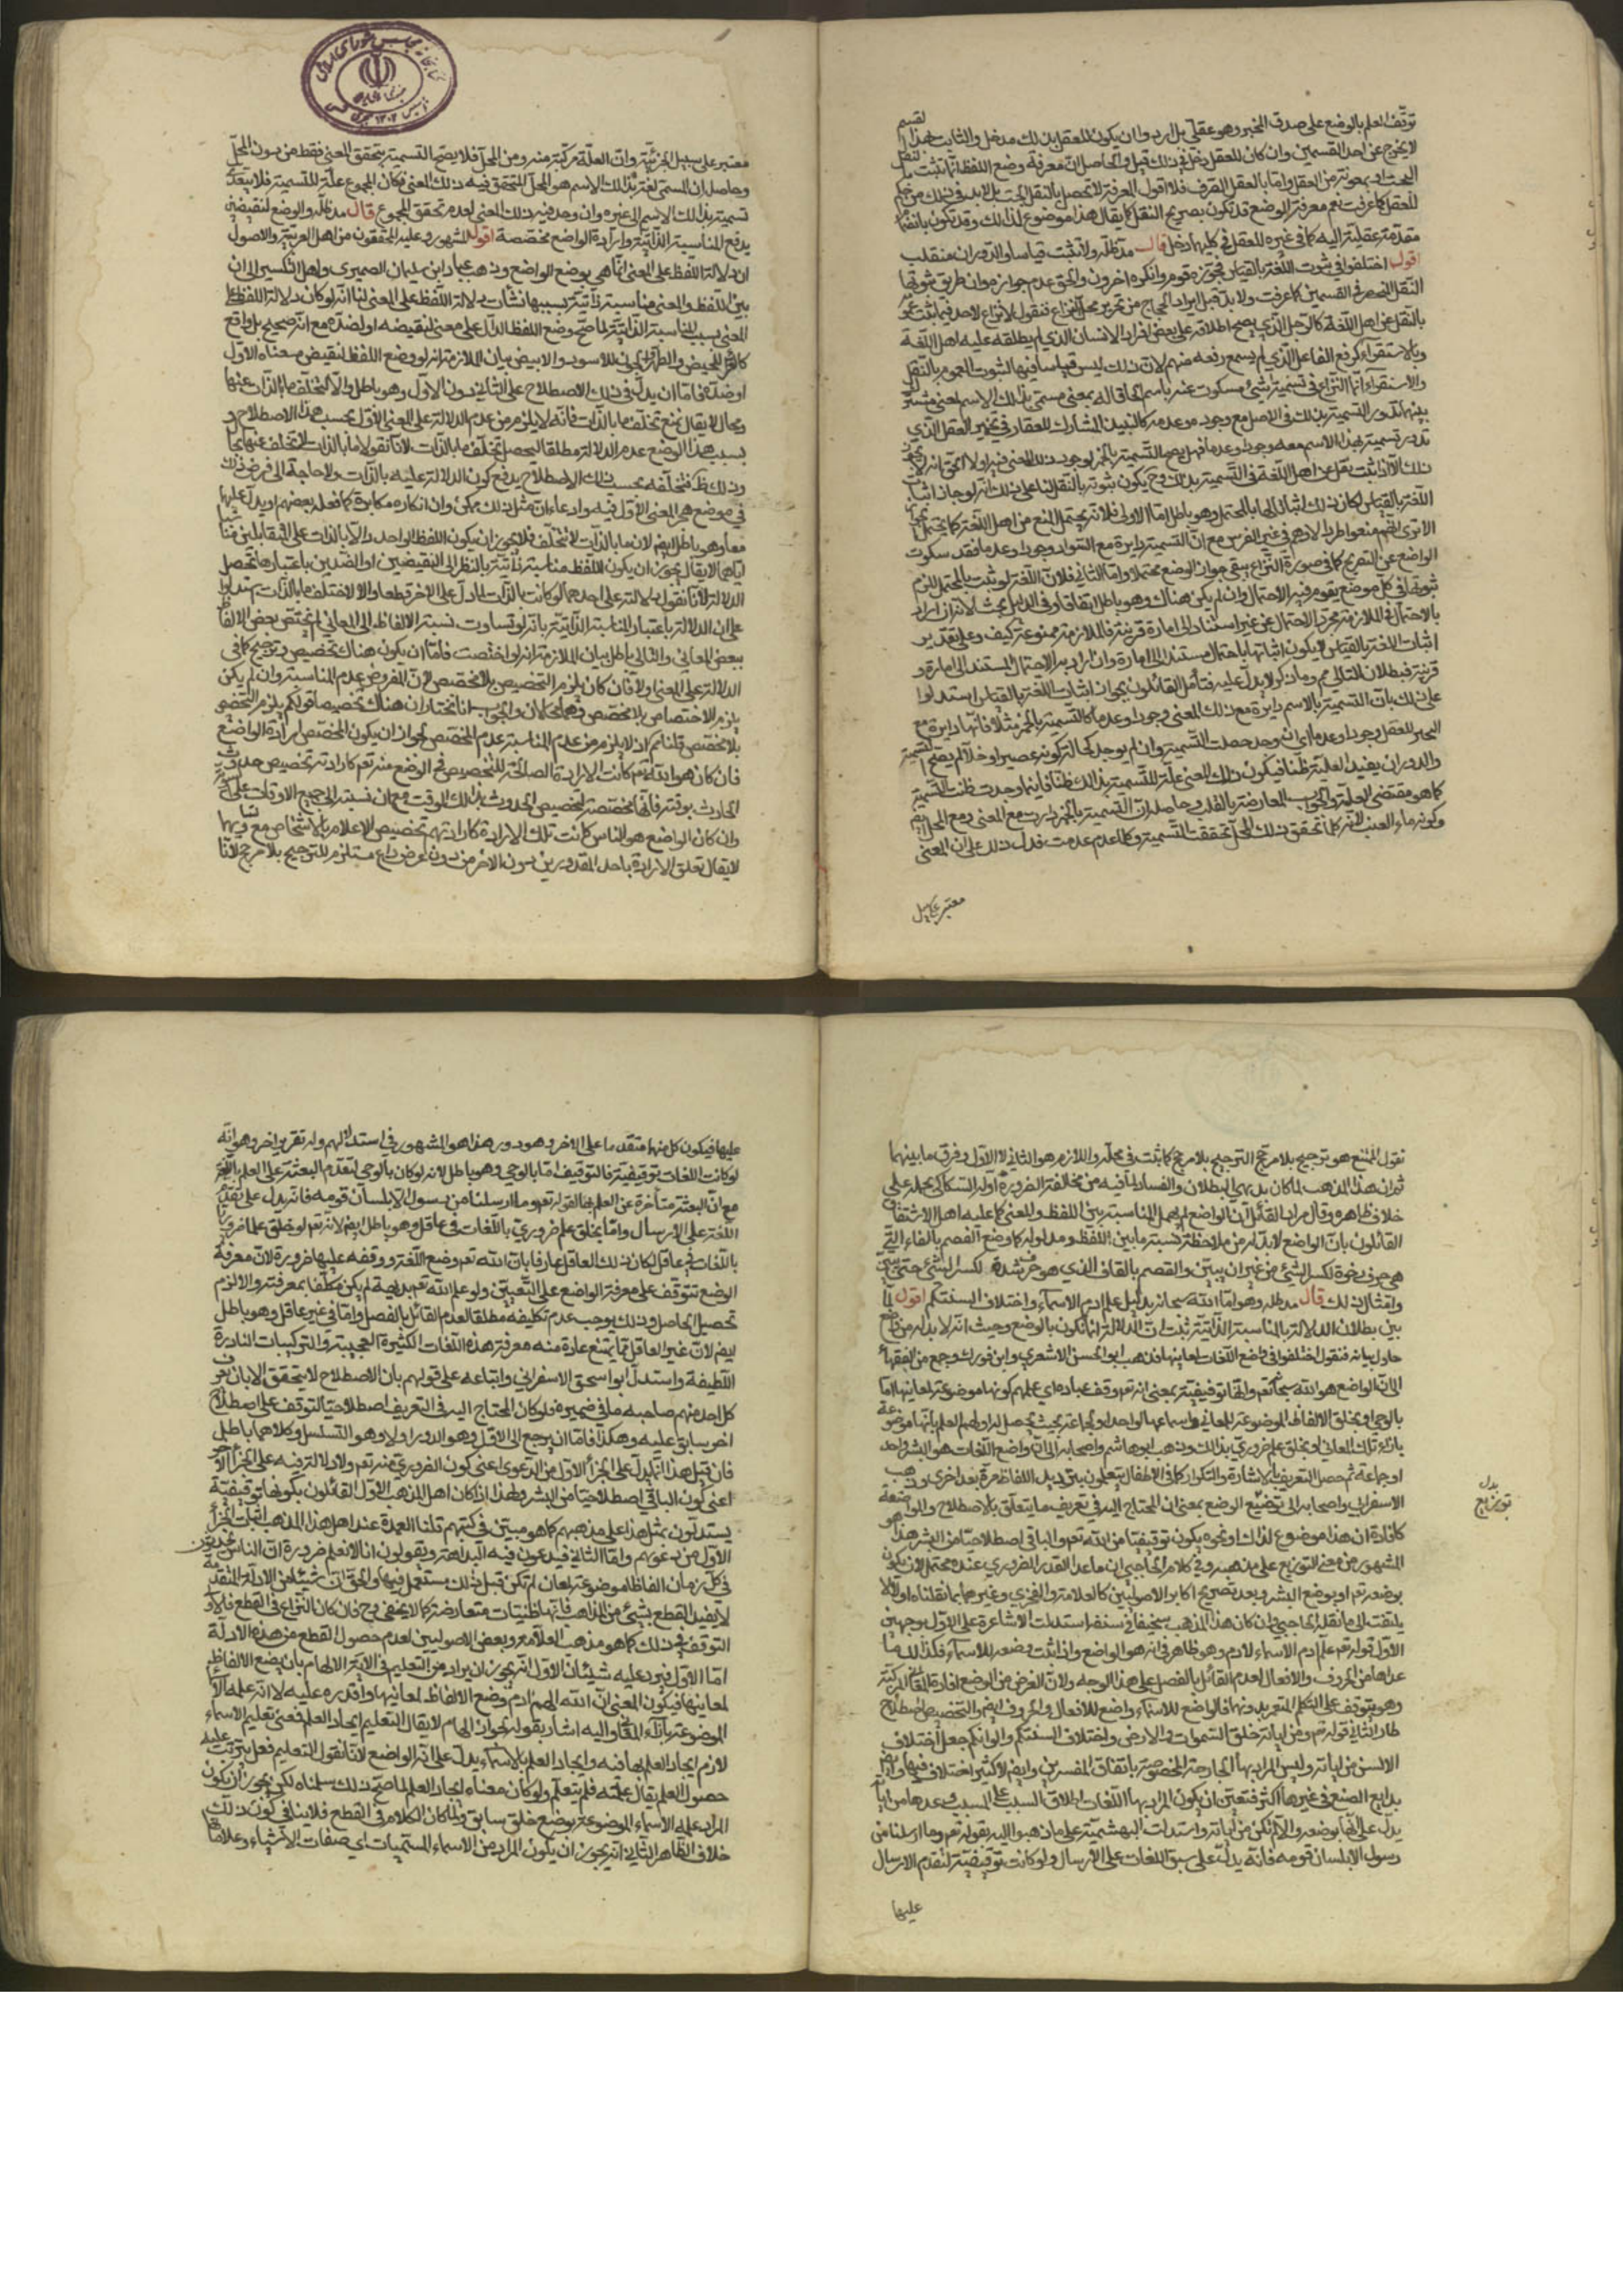 توقف العلم بالوضع على صدق المخبر وهو عقلي بل اريد وان يكون للعقل بذلك مدخل والثابت بهذا القسم
لا يخرج عن احد القسمين وان كان للعقل دخل في ذلك قيل والحاصل ان معرفة وضع اللفظ انما تثبت بالنقل
البحت او بمعونة من العقل واما بالعقل الصرف فلا اقول المعرفة لا تحصل بالنقل البحت بل لابد في ذلك من حكم
للعقل كما عرفت نعم معرفة الوضع قد تكون بصريح النقل كما يقال هذا موضوع لذلك وقد تكون بانضمام
مقدمة عقلية اليه كما في غيره فللعقل في كليهما دخل قال مد ظله ولا تثبت قياسا والدوران منقلب
اقول اختلفوا في ثبوت اللغة بالقياس فجوزه قوم وانكره اخرون والحق عدم جوازه وان طريق ثبوتها
النقل المنحصر في القسمين كما عرفت ولابد قبل ايراد الحجاج من تحرير محل النزاع فنقول لا نزاع لاحد فيما ثبت
بالنقل عن اهل اللغة كالرجل الذي يصح اطلاقه على بعض افراد الانسان الذي لم يطلقه عليه اهل اللغة
وبالاستقراء كرفع الفاعل الذي لم يسمع رفعه منهم لان ذلك ليس قياسا فيها لثبوت العموم بالنقل
والاستقراء انما النزاع في تسمية شيء مسكوت عنه باسم الحاقا له بمعنى مسمى بذلك الاسم لمعنى مشترك
بينهما تدور التسمية بذلك في الاصل مع وجوده وعدمه كالنبيذ المشارك للعقار في تخمير العقل الذي
تدور تسميته بهذا الاسم معه وجودا وعدما فهل يصح التسمية بالخمر لوجود ذلك المعنى فيه او لا الحق انه لا يجوز
ذلك الا اذا ثبت نقل عن اهل اللغة في التسمية بذلك وح يكون ثبوته بالنقل لنا على ذلك انه لو جاز اثبات
اللغة بالقياس لكان ذلك اثباتا لها بالمحتمل وهو باطل اما الاولى فلانه يحتمل المنع من اهل اللغة كما يحتمل
الا ترى انهم منعوا طرد الادهم في غير الفرس مع ان التسمية دايرة مع السواد وجودا وعدما فقد سكوت
الواضع عن التصريح كما في صورة النزاع يبقى جواز الوضع محتملا واما الثاني فلان اللغة لو ثبت بالمحتمل لزم
ثبوتها في كل موضع يقوم فيه الاحتمال وان لم يكن هناك وهو باطل اتفاقا وفي الدليل بحث لانه ان اراد
بالاحتمال في الملازمة مجرد الاحتمال من غير استناد الى امارة قرينة فالملازمة ممنوعة كيف وعلى تقدير
اثبات اللغة بالقياس لا يكون اثباتها باحتمال مستند الى امارة وان اراد به الاحتمال المستند الى امارة و
قرينة فبطلان للتالي مم وما ذكر لا يدل عليه فتامل القائلون بجواز اثبات اللغة بالقياس استدلوا
على ذلك بان التسمية بالاسم دايرة مع ذلك المعنى وجودا وعدما كالتسمية بالخمر مثلا فانها دايرة مع
التخمير للعقل وجودا وعدما اي ان وجد حصلت التسمية وان لم يوجد كحالة كونه عصيرا او خلا لم يصح التسمية
والدوران يفيد العلية ظنا فيكون ذلك المعنى علة للتسمية بذلك ظنا فاينما وجدت ظنت التسمية
كما هو مقتضى العلة والجواب المعارضة بالقلب وحاصله ان التسمية بالخمر دارت مع المعنى ومع المحل ايضا
وكونه ماء العنب لانه كلما تحقق ذلك المحل تحققت التسمية وكلما عدم عدمت فدل ذلك على ان المعنى
معتبر على سبيل
معتبر على سبيل الجزئية وان العلة مركبة منه ومن المحل فلا يصح التسمية بتحقق المعنى فقط من دون المحل
وحاصله ان المسمى لغة بذلك الاسم هو المحل المتحقق فيه ذلك المعنى فكان المجموع علة للتسمية فلا يتعدى
تسميته بذلك الاسم الى غيره وان وجد فيه ذلك المعنى لعدم تحقق المجموع قال مد ظله والوضع لنقيضين
يدفع المناسبة الذاتية وارادة الواضع مخصصة اقول المشهور وعليه المحققون من اهل العربية والاصول
ان دلالة اللفظ على المعنى انما هي بوضع الواضع وذهب عباد ابن سليمان الصيمري واهل التكسير الى ان
بين اللفظ والمعنى مناسبة ذاتية بسببها نشات دلالة اللفظ على المعنى لنا انه لو كان دلالة اللفظ على
المعنى بسبب المناسبة الذاتية لما صح وضع اللفظ الدال على معنى لنقيضه او لضده مع انه صحيح بل واقع
كالقرء للحيض والطهر والجون للاسود والابيض بيان الملازمة انه لو وضع اللفظ لنقيض معناه الاول
او ضده فاما ان يدل في ذلك الاصطلاح على الثاني دون الاول وهو باطل والا لتخلف ما بالذات عنها
ومحال لا يقال نمنع تخلف ما بالذات فانه لا يلزم من عدم الدلالة على المعنى الاول بحسب هذا الاصطلاح و
بسبب هذا الوضع عدم الدلالة مطلقا ليحصل تخلف ما بالذات لانا نقول ما بالذات لا تتخلف عنها بحال
وذلك ظ فتخلفه بحسب ذلك الاصطلاح يدفع كون الدلالة عليه بالذات ولا حاجة الى فرض ذلك
في موضع هجر المعنى الاول فيه وادعاء ان مثل ذلك ممكن وان انكاره مكابرة كما فعله بعضهم او يدل عليهما
معا وهو باطل ايضا لان ما بالذات لا تتخلف فلا يجوز ان يكون اللفظ الواحد دالا بالذات على المتقابلين مناسبا
اياهما لا يقال يجوز ان يكون اللفظ مناسبة ذاتية بالنظر الى النقيضين او الضدين باعتبارها تحصل
الدلالة لانا نقول دلالته على احدهما لو كانت بالذات لما دل على الاخر قطعا والا لاختلف ما بالذات استدل
على ان الدلالة باعتبار المناسبة الذاتية بانه لو تساوت نسبة الالفاظ الى المعاني لم تختص بعض الالفاظ
ببعض المعاني والتالي باطل بيان الملازمة انه لو اختصت فاما ان يكون هناك تخصيص وترجيح كما في
الدلالة على المعنى او لا فان كان يلزم التخصيص بلا مخصص لان المفروض عدم المناسبة وان لم يكن
يلزم الاختصاص بلا مخصص وهما محالان والجواب انا نختار ان هناك تخصيصا قولكم يلزم التخصيص
بلا مخصص قلنا مم اذ لا يلزم من عدم المناسبة عدم المخصص لجواز ان يكون المخصص ارادة الواضع
فان كان هو الله تع كانت الارادة الصالحة للتخصيص في الوضع منه تع كارادته تخصيص حدوث
الحادث بوقته فانها مخصصة لتخصيص الحدوث بذلك الوقت مع ان نسبته الى جميع الاوقات على السوية
وان كان الواضع هو الناس كانت تلك الارادة كارادتهم تخصيص الاعلام بالاشخاص مع تساويها
لا يقال تعلق الارادة باحد المقدورين دون الاخر من دون غرض داع مستلزم للترجيح بلا مرجح لانا
نقول الممتنع هو ترجيح بلا مرجح لا الترجيح بلا مرجح كما ثبت في محله واللازم هو الثاني لا الاول وفرق ما بينهما
ثم ان هذا المذهب لما كان بديهي البطلان والفساد لما فيه من مخالفة الضرورة اوله السكاكي بحمله على
خلاف ظاهره وقال مراد القائل ان الواضع لم يهمل المناسبة بين اللفظ والمعنى كما عليه اهل الاشتقاق
القائلون بان الواضع لابد له من ملاحظة نسبة ما بين اللفظ ومدلوله كما وضع الفصم بالفاء التي
هي حرف رخوة لكسر الشيء من غير ان يبين والقصم بالقاف الذي هو حرف شدة لكسر الشيء حتى يبين
وامثال ذلك قال مد ظله وهو اما الله سبحانه بدليل علم ادم الاسماء واختلاف السنتكم اقول لما
بين بطلان الدلالة بالمناسبة الذاتية ثبت ان الدلالة انما تكون بالوضع وحيث انه لابد له من واضع
حاول بيانه فنقول اختلفوا في واضع اللغات لمعانيها فذهب ابو الحسن الاشعري وابن فورك وجمع من الفقهاء
الى ان الواضع هو الله سبحانه تع وانها توقيفية بمعنى انه تع وقف عباده اي علمهم كونها موضوعة لمعانيها اما
بالوحي او بخلق الالفاظ الموضوعة للمعاني واسماعها لواحد او لجماعة بحيث يحصل له او لهم العلم بانها موضوعة
بازاء تلك المعاني او بخلق علم ضروري بذلك وذهب ابو هاشم واصحابه الى ان واضع اللغات هو البشر واحد
او جماعة ثم حصل التعريف بالاشارة والتكرار كما في الاطفال يتعلمون بترديد اللفاظ مرة بعد اخرى وذهب
الاسفرايني واصحابه الى توضيع الوضع بمعنى ان المحتاج اليه في تعريف ما يتعلق بالاصطلاح والمواضعة
كافادة ان هذا موضوع لذلك ونحوه يكون توقيفيا من الله تع والباقي اصطلاحيا من البشر هذا هو
المشهور من معنى التوزيع على مذهبه وفي كلام الحاجبي ان ما عدا القدر الضروري عنده محتمل لان يكون
بوضعه تع او بوضع البشر وبعد تصريح اكابر الاصوليين كالعلامة والفخري وغيرهما بما نقلناه اولا لا
يلتفت الى ما نقله الحاجبي وان كان هذا المذهب سخيفا في نفسه استدلت الاشاعرة على الاول بوجهين
الاول قوله تع علم ادم الاسماء لادم وهو ظاهر في انه هو الواضع واذا ثبت وضعه للاسماء فكذلك ما
عداها من الحروف والافعال لعدم القائل بالفصل على هذا الوجه ولان الغرض من الوضع افادة المعاني التركيبية
وهو يتوقف على التكلم المتعسر بدونها فالواضع للاسماء واضع للافعال والحروف ايضا والتخصيص اصطلاح
طار الثاني قوله تع ومن اياته خلق السموات والارض واختلاف السنتكم والوانكم جعل اختلاف
الالسن من اياته وليس المراد بها الجارحة المخصوصة باتفاق المفسرين وايضا لا كثير اختلاف فيها واذا
بدايع الصنع في غيرها اكثر فتعين ان يكون المراد بها اللغات اطلاقا للسبب على المسبب وعدها من اياته
يدل على انها بوضعه والا لم تكن من اياته واستدلت البهشمية على ما ذهبوا اليه بقوله تع وما ارسلنا من
رسول الا بلسان قومه فانه يدل على سبق اللغات على الارسال ولو كانت توقيفية لتقدم الارسال
عليها
بدل
توزيع
عليها فيكون كل منهما متقدما على الاخر وهو دور هذا هو المشهور في استدلالهم وله تقرير اخر وهو انه
لو كانت اللغات توقيفية فالتوقيف اما بالوحي وهو باطل لانه لو كان بالوحي لتقدم البعثة على العلم باللغة
مع ان البعثة متاخرة عن العلم بها لقوله تع وما ارسلنا من رسول الا بلسان قومه فانه يدل على تقدم
اللغة على الارسال واما بخلق علم ضروري باللغات في عاقل وهو باطل ايضا لانه تع لو خلق علما ضروريا
باللغات في عاقل لكان ذلك العاقل عارفا بان الله تع وضع اللغة ووقفه عليها ضرورة لان معرفة
الوضع تتوقف على معرفة الواضع على التعيين ولو علم الله تع بديهة لم يكن مكلفا بمعرفته والا لزم
تحصيل الحاصل وذلك يوجب عدم تكليفه مطلقا لعدم القائل بالفصل واما في غير عاقل وهو باطل
ايضا لان غير العاقل مما يمتنع عادة منه معرفة هذه اللغات الكثيرة العجيبة والتركيبات النادرة
اللطيفة واستدل ابو اسحق الاسفرايني واتباعه على قولهم بان الاصطلاح لا يتحقق الا بان يعرف
كل احد منهم صاحبه ما في ضميره فلو كان المحتاج اليه في التعريف اصطلاحيا لتوقف على اصطلاح
اخر سابق عليه وهكذا فاما ان يرجع الى الاول وهو الدور او لا وهو التسلسل وكلاهما باطل
فان قيل هذا انما يدل على الجزء الاول من الدعوى اعني كون الضروري منه تع ولا دلالة فيه على الجزء الاخر
اعني كون الباقي اصطلاحيا من البشر ولهذا اذا كان اهل المذهب الاول القائلون بكونها توقيفية
يستدلون بمثل هذا على مذهبهم كما هو مبين في كتبهم قلنا العمدة عند اهل هذا المذهب اثبات الجزء
الاول من دعويهم واما الثاني فيدعون فيه البداهة ويقولون انا لا نعلم ضرورة ان الناس يحدثون
في كل زمان الفاظا موضوعة لمعان لم تكن قبل ذلك مستعمل فيها والحق ان شيئا من الادلة المتقدمة
لا يفيد القطع بشيء من المذاهب فانها ظنيات متعارضة كما لا يخفى وح فان كان النزاع في القطع فالاولى
التوقف في ذلك كما هو مذهب العلامة وبعض الاصوليين لعدم حصول القطع من هذه الادلة
اما الاول فيرد عليه شيئان الاول انه يجوز ان يراد من التعليم في الاية الالهام بان يضع الالفاظ
لمعانيها فيكون المعنى ان الله الهم ادم وضع الالفاظ لمعانيها واقدره عليه لا انه علمه الالفاظ
الموضوعة بازاء المعاني واليه اشار بقوله لجواز الهام لا يقال التعليم ايجاد العلم فمعنى تعليم الاسماء
لادم ايجاد العلم بها فيه وايجاد العلم بالاسماء يدل على انه الواضع لانا نقول التعليم فعل يترتب عليه
حصول العلم يقال علمته فلم يتعلم ولو كان معناه ايجاد العلم لما صح ذلك سلمناه لكن يجوز ان يكون
المراد علمه الاسماء الموضوعة بوضع خلق سابق ولما كان الكلام في القطع فلا ينافي كون ذلك
خلاف الظاهر الثاني انه يجوز ان يكون المراد من الاسماء المسميات اي صفات الاشياء وعلاماتها